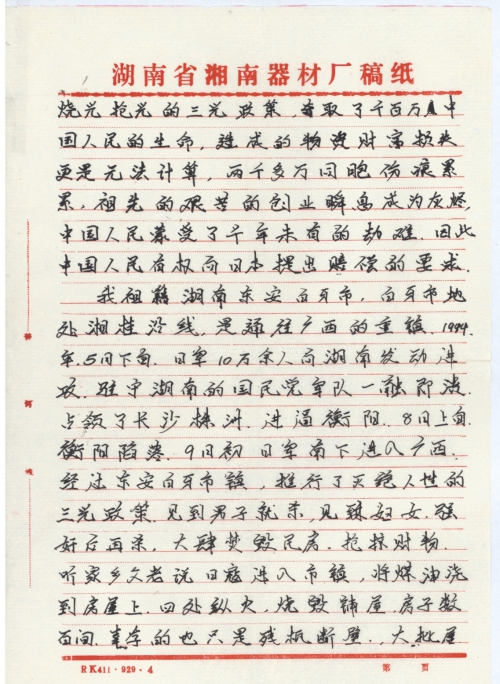 湖南省湘南器材厂稿纸
烧光抢光的三光政策,夺取了千百万中
国人民的生命,造成的物资财富损失
更是无法计算,两千多万同胞伤痕累
累,祖先的艰苦的创业瞬息成为灰烬.
中国人民蒙受了千年未有的劫难.因此
中国人民有权向日本提出赔偿的要求.
我祖籍湖南东安白牙市,白牙市地
处湘桂沿线,是通往广西的重镇.1944
年.5月下旬.日军10万余人向湖南发动进
攻.驻守湖南的国民党军队一触即溃.
占领了长沙株洲.进逼衡阳.8月上旬.
衡阳陷落.9月初日军南下进入广西.
经过东安白牙市镇,推行了灭绝人性的
三光政策.见到男子就杀,见到妇女.强
奸后再杀,大肆焚毁民房.抢掠财物.
听家乡父老说日寇进入市镇,将煤油浇
到房屋上.四处纵火,烧毁铺屋.房子数
百间.幸存的也只是残垣断壁.,大批屋
RK411·929·4
第 页